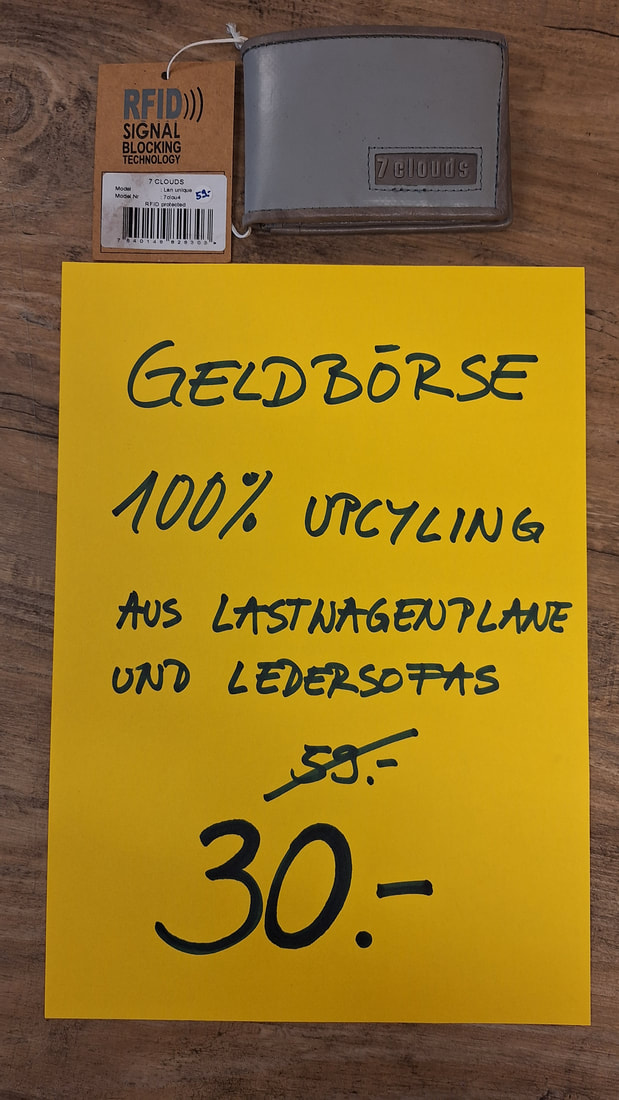 RFID
SIGNAL
BLOCKING
TECHNOLOGY
7 CLOUDS
Model : Len unique 59.-
Model.Nr : 7clou4
RFID protected
7 clouds
GELDBÖRSE
100% UPCYLING
AUS LASTWAGENPLANE
UND LEDERSOFAS
59.-
30.-